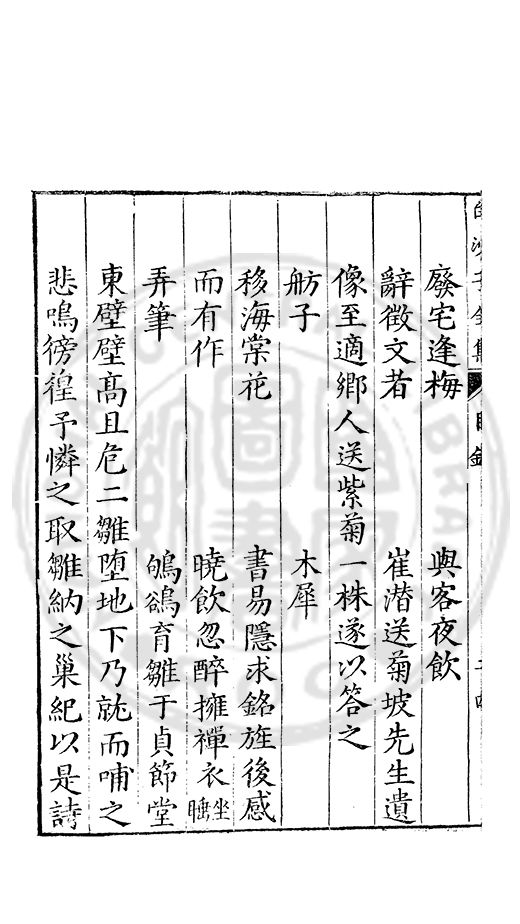 廢宅逢梅　與客夜飲
辭徵文者　崔潛送菊坡先生遺
像至適鄉人送紫菊一株遂以答之
舫子　木犀
移海棠花　書易隱求銘旌後感
而有作　曉飲忽醉擁禪衣坐睡
弄筆　鴝鵒育雛于貞節堂
東壁壁高且危二雛墮地下乃就而哺之
悲鳴徬徨予憐之取雛納之巢紀以是詩